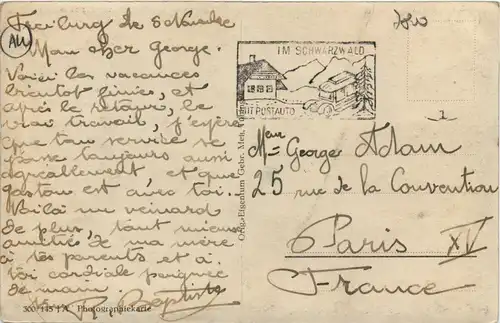 Freiburg le 8 Novembre
Mon cher George.
Voici les vacances
bientôt finies, et
après le retour, le
vrai travail, j'espère
que ton service se
passe toujours aussi
agréablement, et que
gaston est avec toi.
Voilà un veinard
de plus, tant mieux
amitiés de ma mère
à tes parents et à
toi cordiale poignée
de main.
R. Baptiste
AU
IM SCHWARZWALD
MIT POSTAUTO
Orig.-Eigentum Gebr. Metz,
300 145 A Photographiekarte
Georges Adam
25 rue de la Convention
Paris XV
France